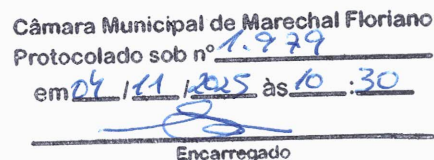 Câmara Municipal de Marechal Floriano
Protocolado sob nº 1.979
em 04 / 11 / 2025 às 10 : 30
Encarregado